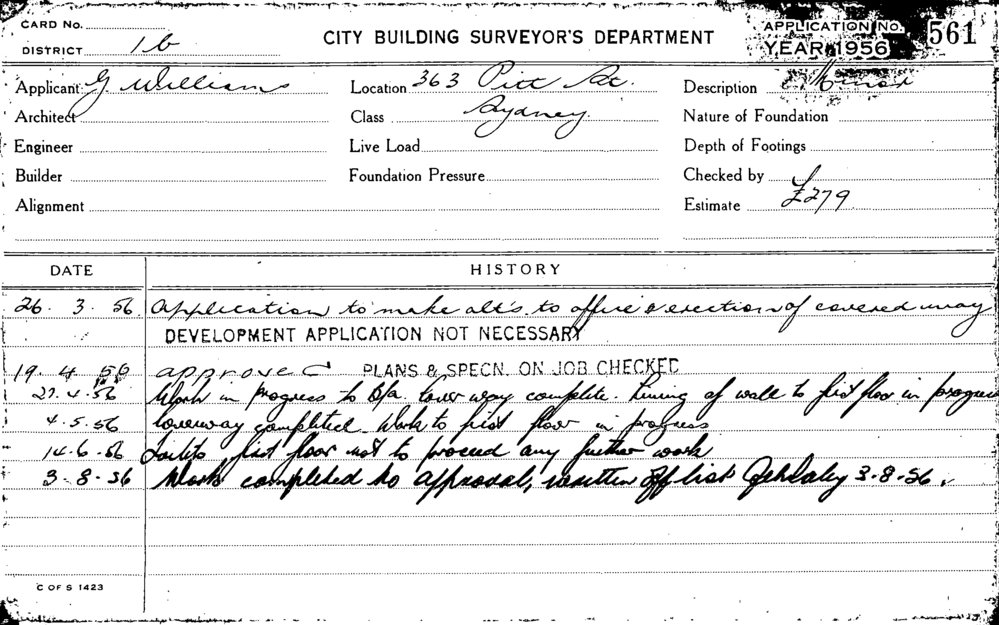 CARD No.
DISTRICT 1b
CITY BUILDING SURVEYOR'S DEPARTMENT
APPLICATION No. 561
YEAR 1956
Applicant G Williams
Location 363 Pitt St.
Description Minor
Architect
Class Sydney.
Nature of Foundation
Engineer
Live Load
Depth of Footings
Builder
Foundation Pressure
Checked by
Alignment
Estimate £279
DATE HISTORY
26. 3. 56 Application to make alt's to office & erection of covered way
DEVELOPMENT APPLICATION NOT NECESSARY
19. 4 56 approved PLANS & SPECN. ON JOB CHECKED
27. 4. 56 Work in progress to B/a. Cover way complete. Lining of wall to first floor in progress
4. 5. 56 Coverway completed Work to first floor in progress
14. 6. 56 first floor not to proceed any further work
3. 8. 56 Work completed to approval, written off list 3. 8. 56.
C OF S 1423